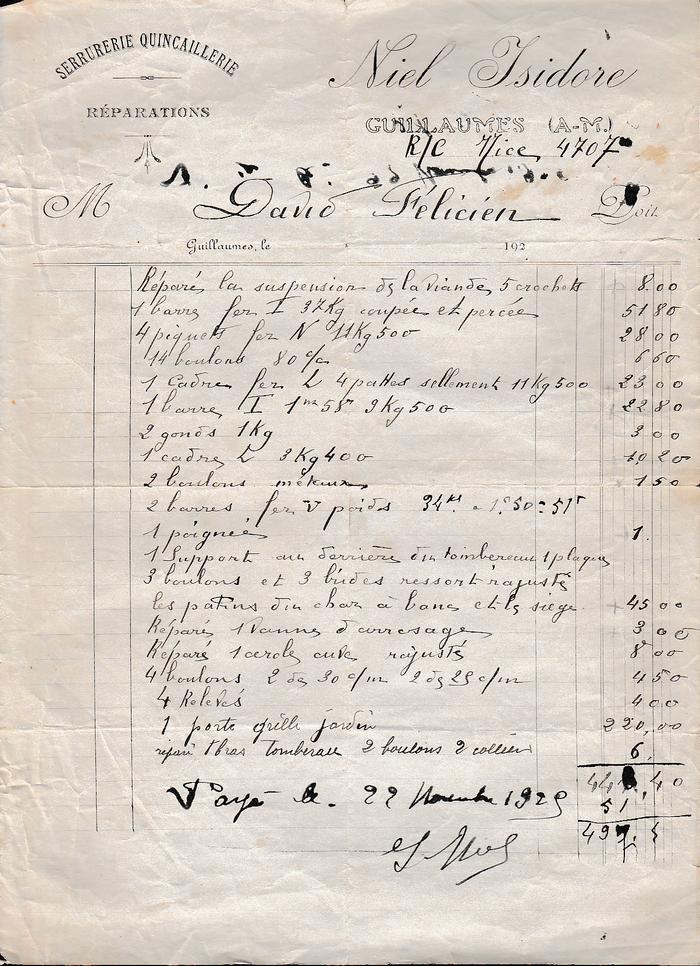 SERRURERIE QUINCAILLERIE
RÉPARATIONS
Niel Isidore
GUILLAUMES (A-M.)
R/C Nice 4707
M David Félicien Doit
Guillaumes, le 192
Réparé la suspension de la viande, 5 crochets 8.00
1 barre fer I 37Kg coupée et percée 51 80
4 piquets fer N 11Kg500 28 00
14 boulons 80 c/m 6 60
1 Cadre fer L 4 pattes sellement 11Kg500 23 00
1 barre I 1m58 9Kg500 22 80
2 gonds 1Kg 3 00
1 cadre L 3Kg400 10 20
2 boulons métaux 1 50
2 barres fer V poids 34K a 1f50 = 51f
1 poignée 1.
1 Support au derrière du tombereau 1 plaque
3 boulons et 3 brides ressort rajusté
les patins du char à banc et le siège 45 00
Réparé 1 Vanne d'arrosage 3 00
Réparé 1 cercle cuve rajusté 8 00
4 boulons 2 de 30 c/m 2 de 25 c/m 4 50
4 Relevés 4 00
1 porte grille jardin 220,00
réparé 1 bras tombereau 2 boulons 2 colliers 6
.40
51
Payé le 22 Novembre 1929